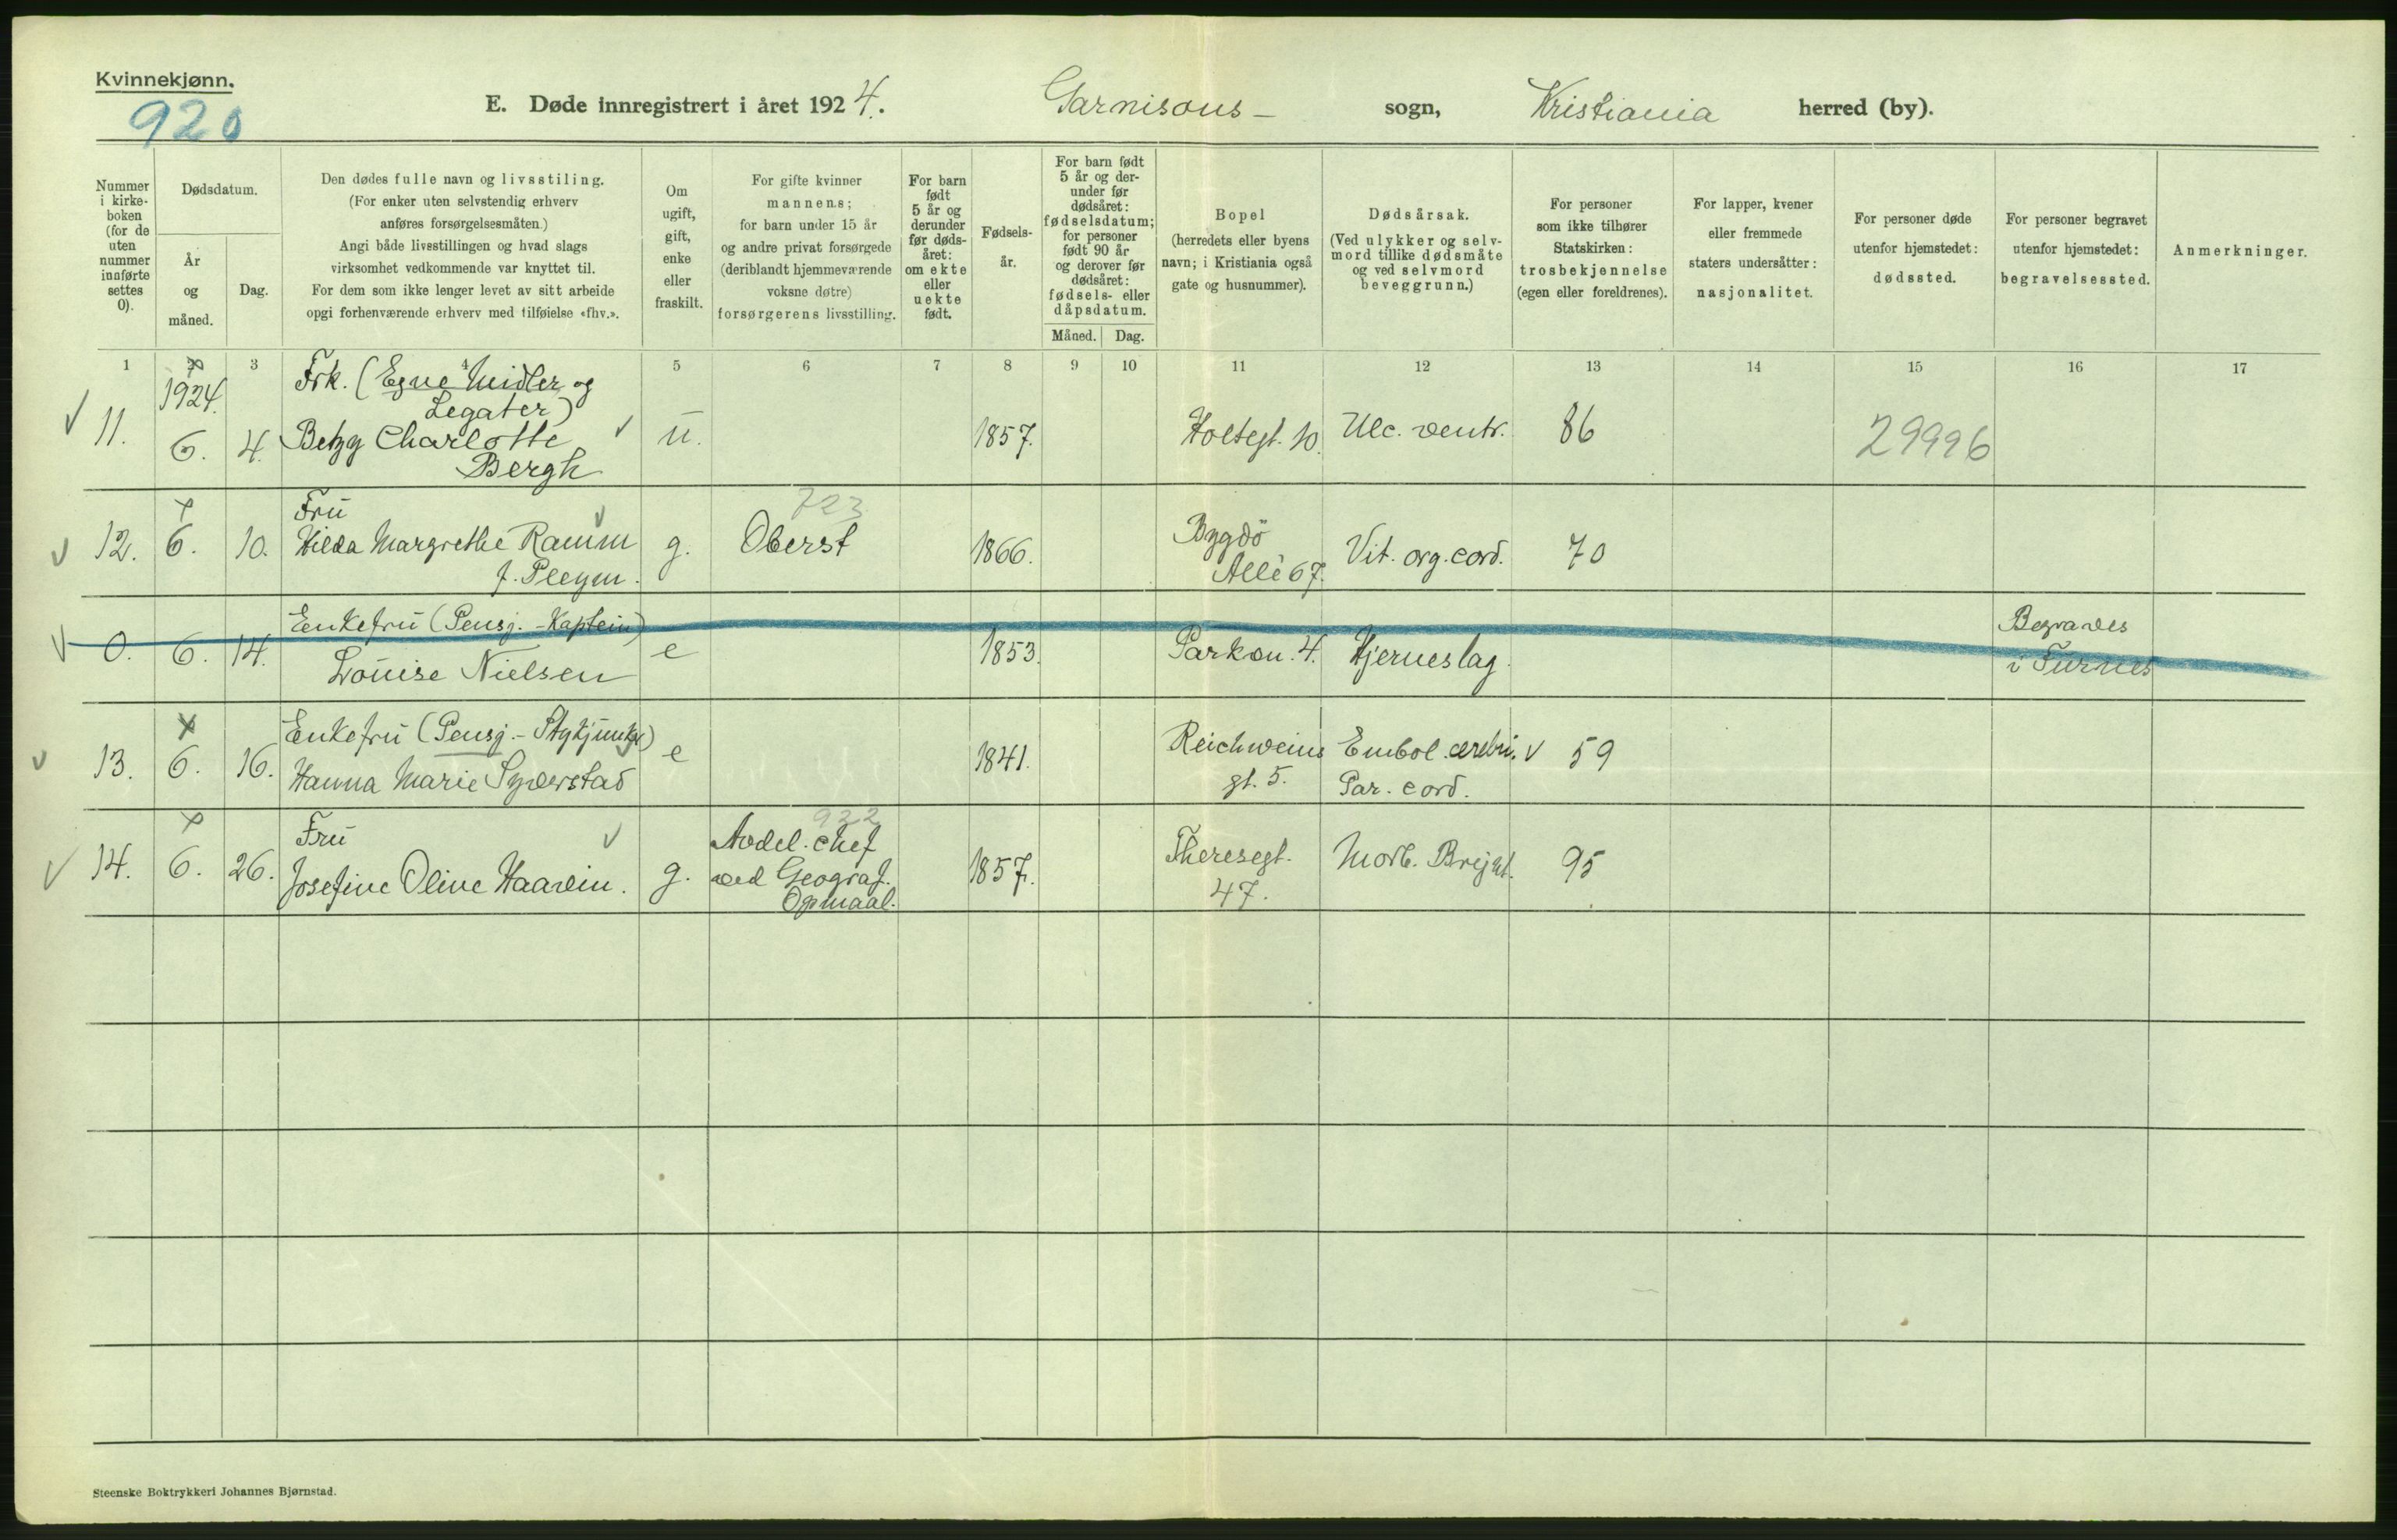 Kvinnekjønn.
920
E. Døde innregistrert i året 1924. Garnisons- sogn, Kristiania herred (by).
Nummer i kirke-boken (for de uten nummer innførte settes 0).
Dødsdatum.
År og måned.
Dag.
Den dødes fulle navn og livsstilling.
(For enker uten selvstendig erhverv
anføres forsørgelsesmåten.)
Angi både livsstillingen og hvad slags
virksomhet vedkommende var knyttet til.
For dem som ikke lenger levet av sitt arbeide
opgi forhenværende erhverv med tilføielse «fhv.».
Om ugift, gift, enke eller fraskilt.
For gifte kvinner
mannens;
for barn under 15 år
og andre privat forsørgede
(deriblandt hjemmeværende
voksne døtre)
forsørgerens livsstilling.
For barn født 5 år og derunder før døds-året: om ekte eller uekte født.
Fødsels-år.
For barn født 5 år og der-under før dødsåret: fødselsdatum; for personer født 90 år og derover før dødsåret: fødsels- eller dåpsdatum.
Måned. Dag.
Bopel
(herredets eller byens
navn; i Kristiania også
gate og husnummer).
Dødsårsak.
(Ved ulykker og selv-
mord tillike dødsmåte
og ved selvmord
beveggrunn.)
For personer
som ikke tilhører
Statskirken:
trosbekjennelse
(egen eller foreldrenes).
For lapper, kvener
eller fremmede
staters undersåtter:
nasjonalitet.
For personer døde
utenfor hjemstedet:
dødssted.
For personer begravet
utenfor hjemstedet:
begravelsessted.
Anmerkninger.
1 2 3 4 5 6 7 8 9 10 11 12 13 14 15 16 17
1924. Frk. (Egne Midler og
Legater)
11. 6. 4. Betzy Charlotte u. 1857. Holtegt. 10. Ulc. ventr. 86 29996
Bergh
Fru 723
12. 6. 10. Hilda Margrethe Ramm g. Oberst 1866. Bygdö Vit. org. cord. 70
f. Pleym. Allè 67.
Enkefru (Pensj. - Kaptein) Begraves
0. 6. 14. Louise Nielsen e 1853. Parkvn. 4. Hjerneslag. i Furnes
Enkefru (Pensj. - Stykjunker) Reichweins Embol. cerebri.
13. 6. 16. Hanna Marie Syverstad e 1841. gt. 5. Par. cord. 59
Fru 922
Avdel. chef
14. 6. 26. Josefine Olive Haavin. g. ved Geograf. 1857. Theresegt. Morb. Brigt. 95
Opmaal. 47.
Steenske Boktrykkeri Johannes Bjørnstad.